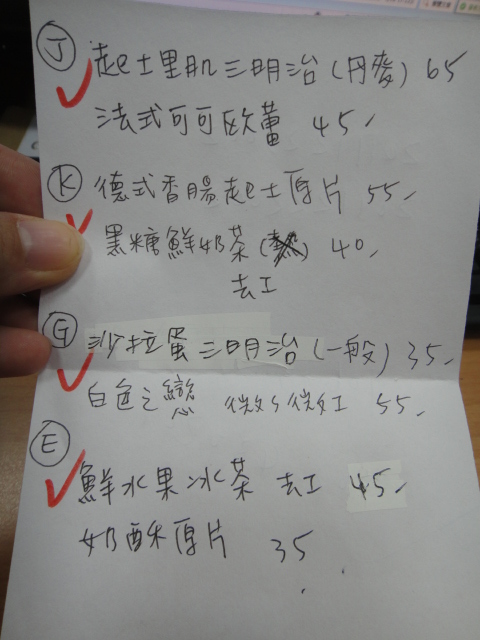 J 起士里肌三明治(丹麥) 65
法式可可欧蕾 45,
K 德式香腸起士厚片 55,
黑糖鮮奶茶(熱) 40,
去I
G 沙拉蛋三明治(一般) 35,
白色之戀 微 55,
E
鮮水果冰茶 去I 45,
奶酥厚片 35